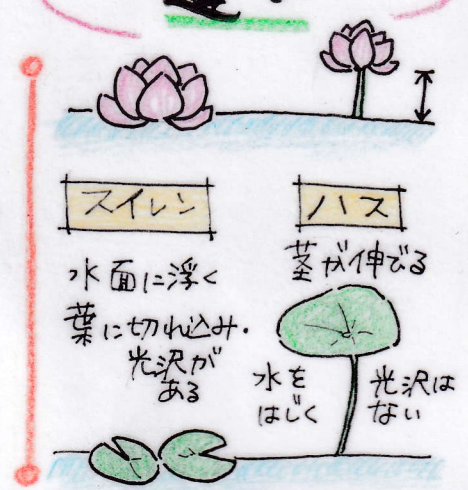 スイレン
水面に浮く
葉に切れ込み・
光沢が
ある
ハス
茎が伸びる
水を
はじく
光沢は
ない